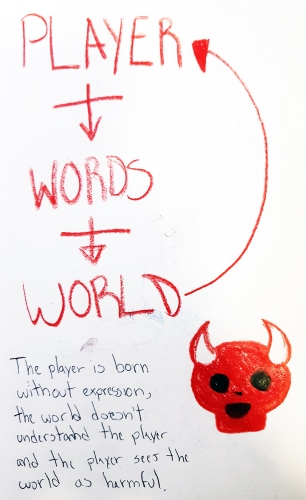 PLAYER
WORDS
WORLD
The player is born
without expression,
the world doesn't
understand the player
and the player sees the
world as harmful.